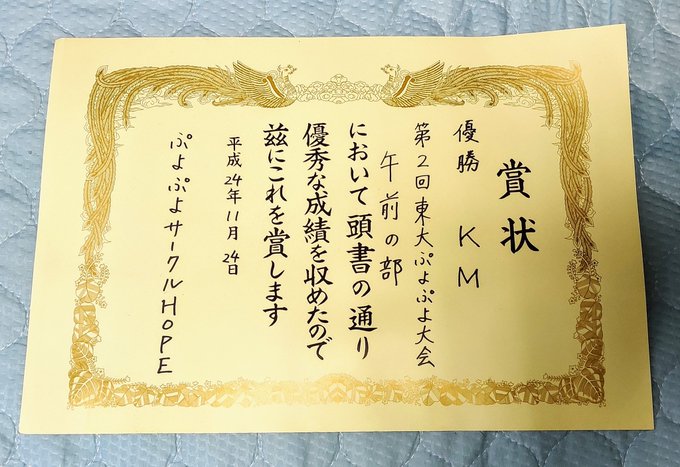 賞状
優勝 KM
第2回東大ぷよぷよ大会
午前の部
において頭書の通り
優秀な成績を収めたので
玆にこれを賞します
平成24年11月24日
ぷよぷよサークルHOPE